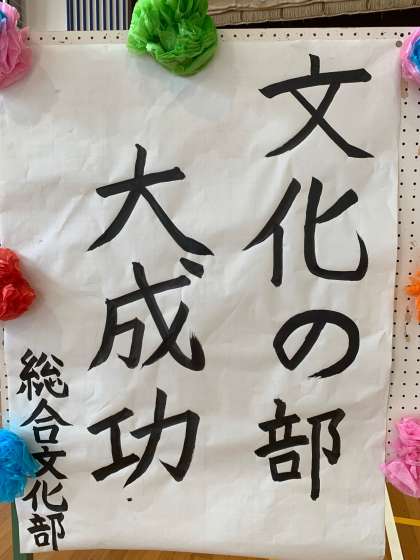 文化の部
大成功
総合文化部